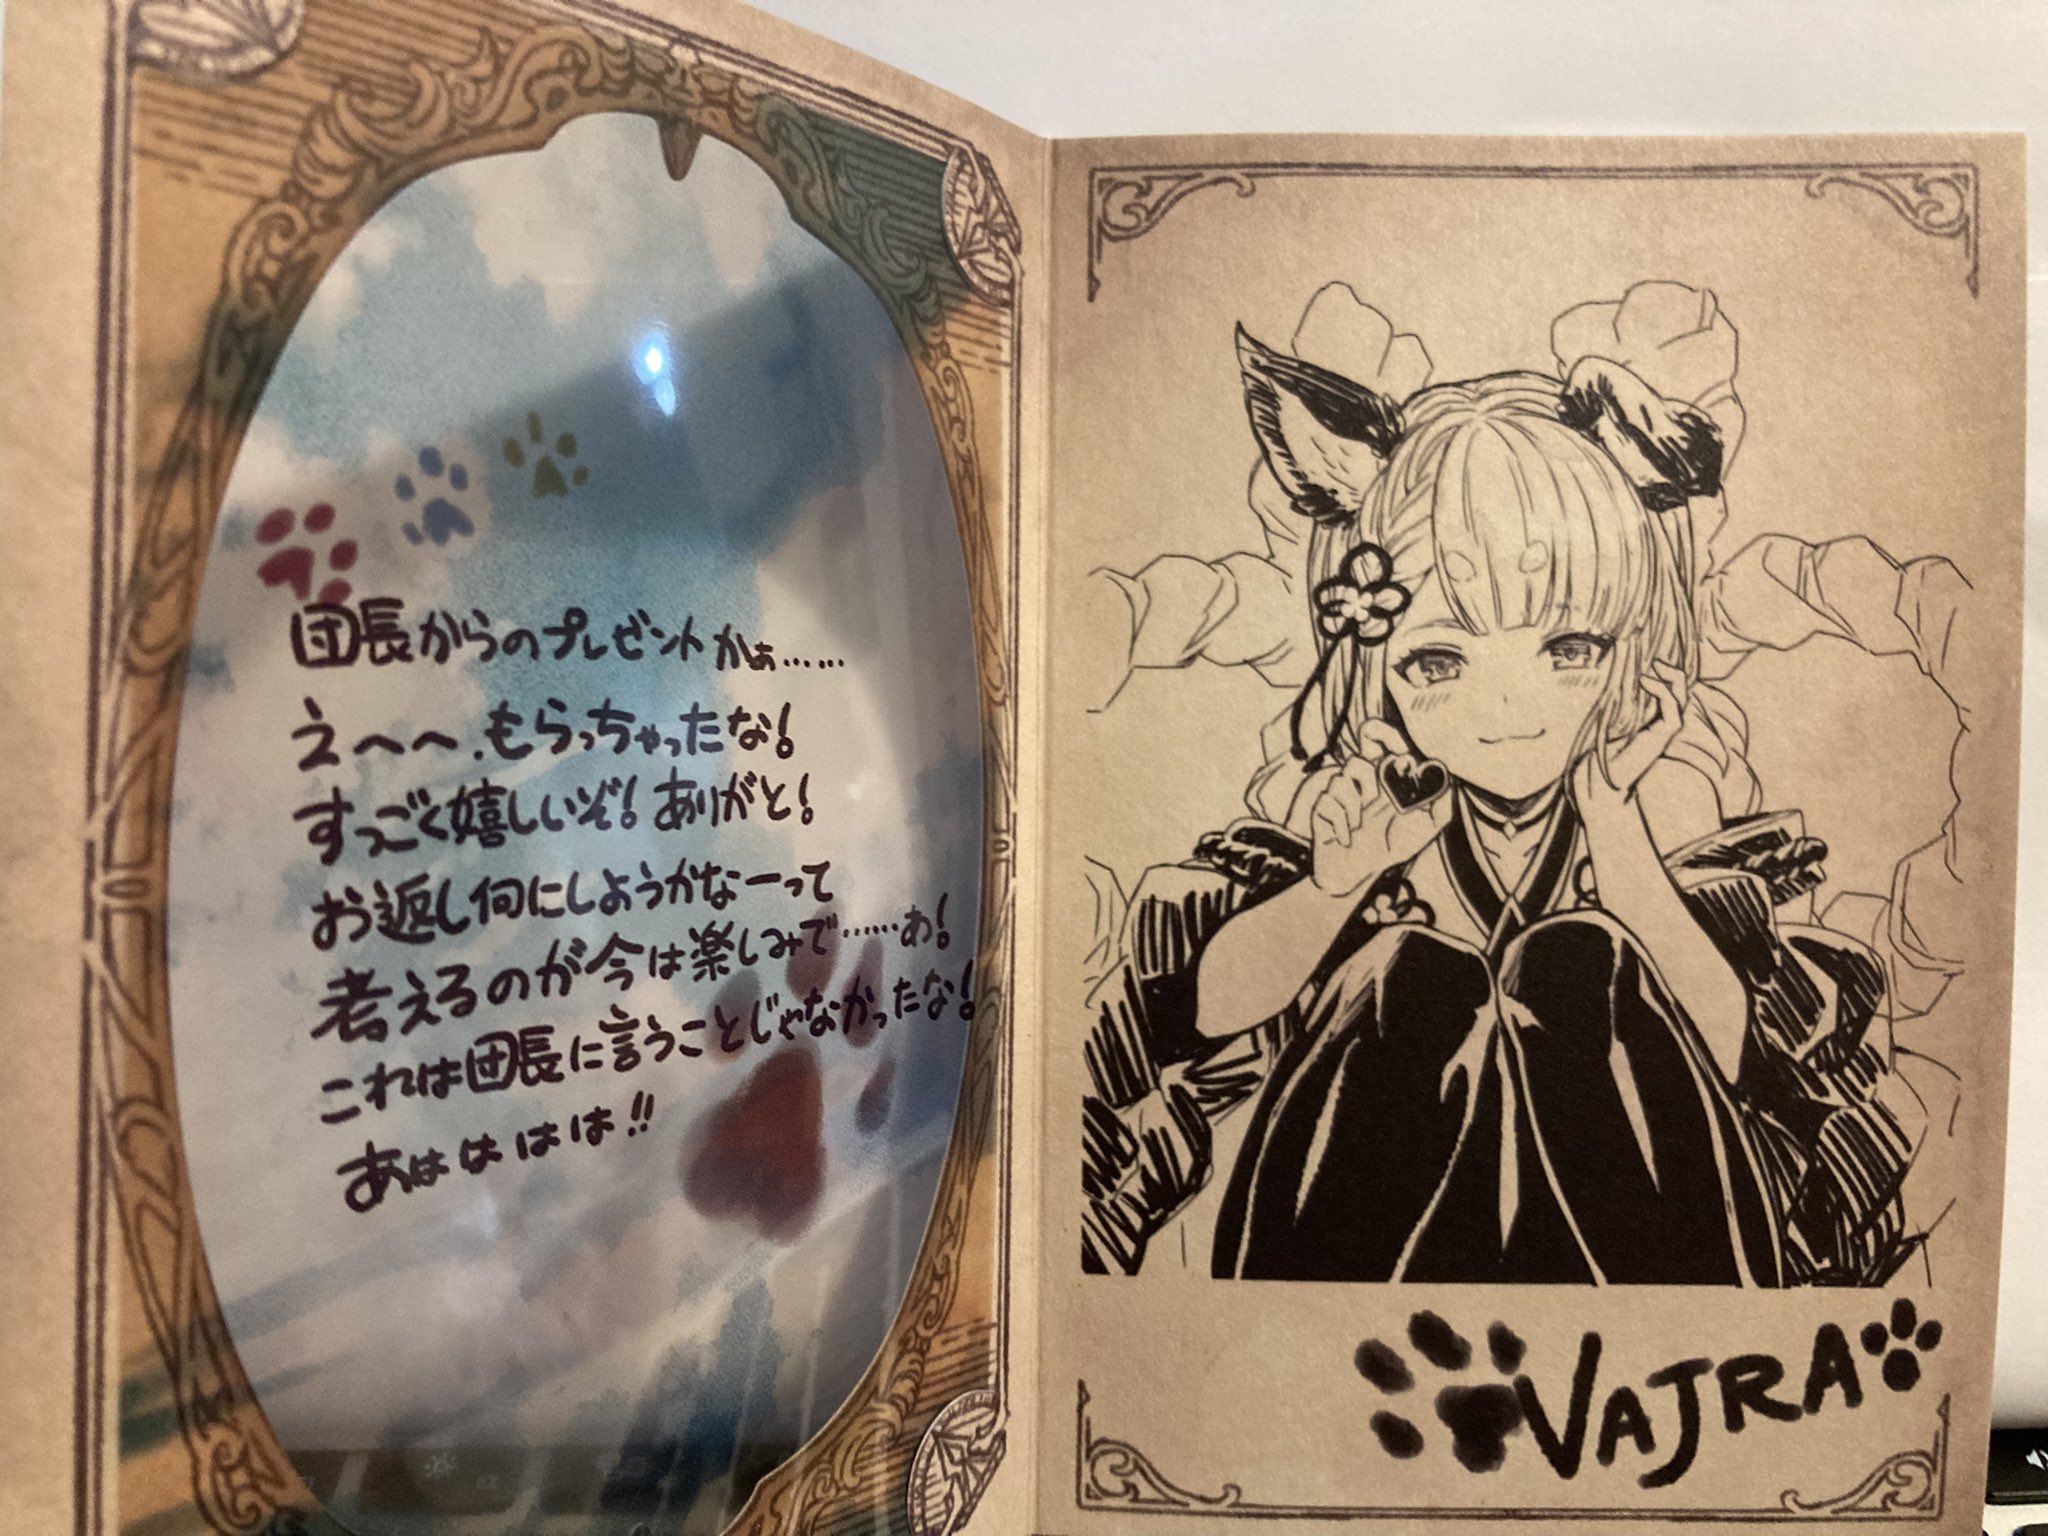 団長からのプレゼントかぁ……
えへへ、もらっちゃったな！
すっごく嬉しいぞ！ありがと！
お返し何にしようかなーって
考えるのが今は楽しみで……あ！
これは団長に言うことじゃなかったな！
あはははは！！
VAJRA